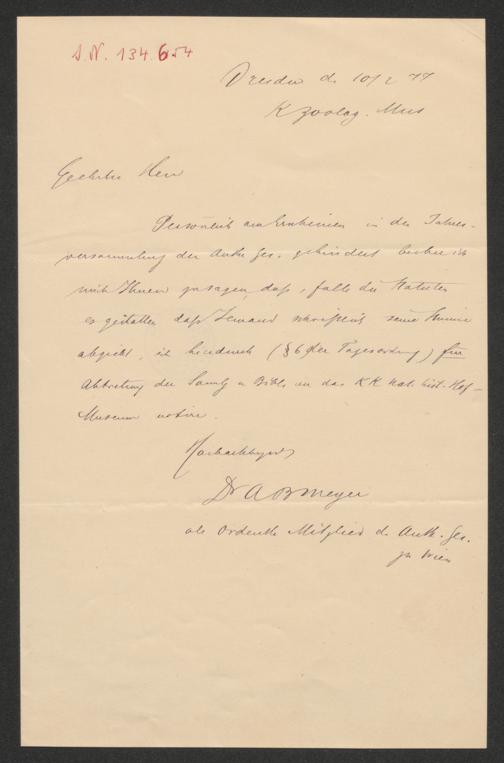 S.N. 134.654
Dresden d. 10/2 77
K Zoolog. Mus
Geehrter Herr
Persönlich am Erscheinen in der Jahres-
versammlung der Anthr. Ges. gehindert beehre ich
mich Ihnen zu sagen, daß, falls die Statuten
es gestatten daß Jemand schriftlich seine Stimme
abgiebt, ich hierdurch (§ 6 der Tagesordnung) für
Abtretung der Samlg u Bibl. an das KK Nat. hist. Hof-
Museum votire.
Hochachtungsvoll
Dr A B Meyer
als Ordentl. Mitglied d. Anth. Ges.
zu Wien